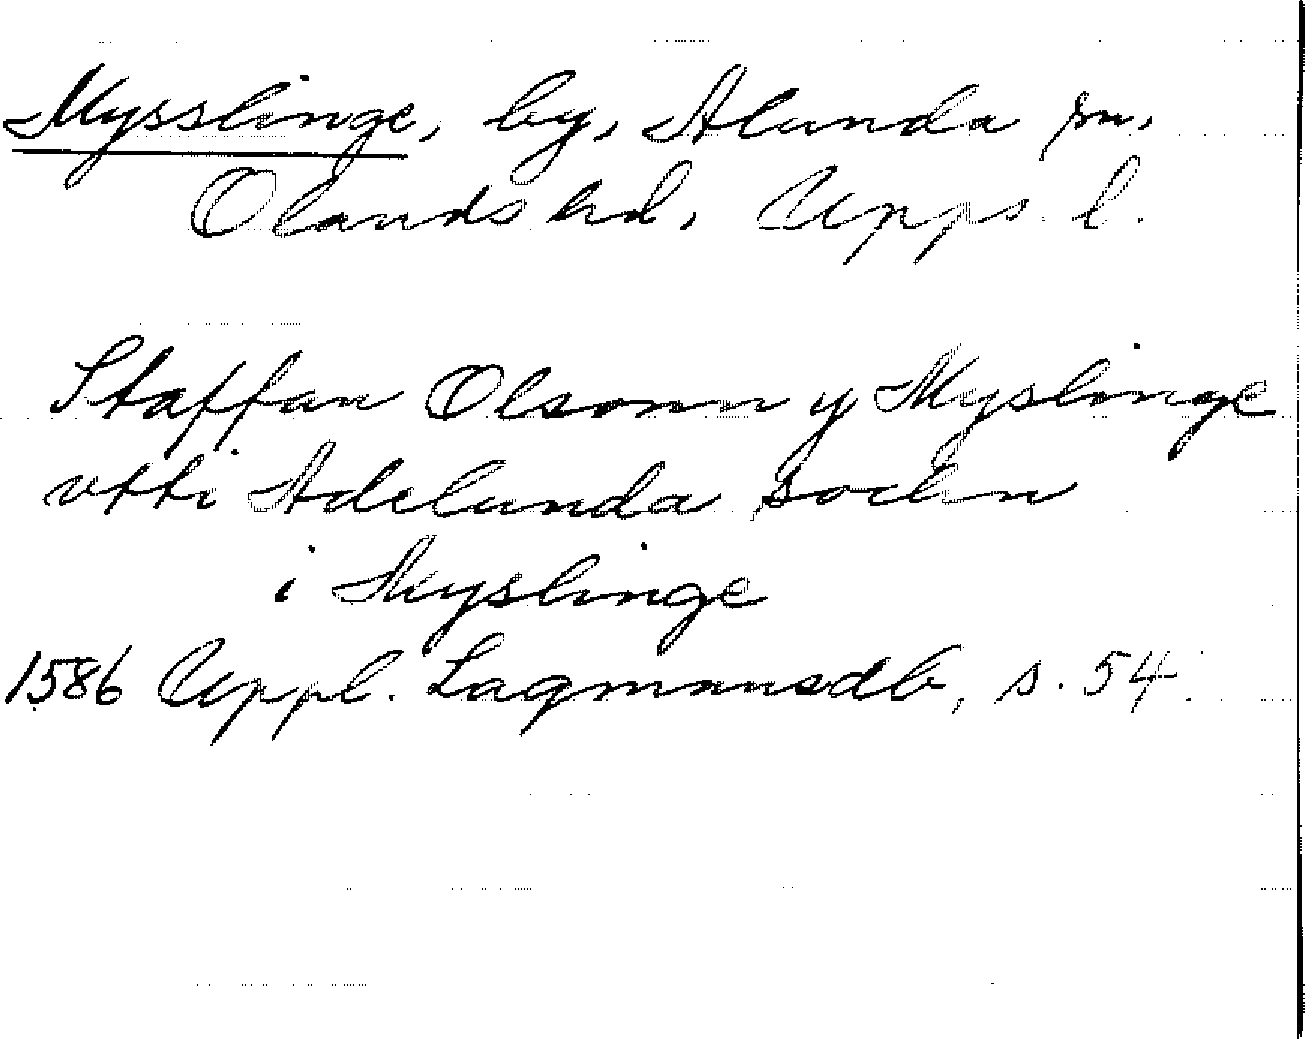 Mysslinge, by, Alunda sn,
Olands hd, Upps. l.
Staffan Olsonn y Myslinge
vtti Adelunda sochn
i Myslinge
1586 Uppl. Lagmansdb, s. 54.